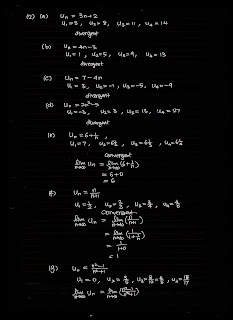 (2) (a) Uₙ = 3n+2
U₁=5, U₂=8, U₃=11, U₄=14
divergent
(b) Uₙ = 4n-3
U₁=1, U₂=5, U₃=9, U₄=13
divergent
(c) Uₙ = 7-4n
U₁=3, U₂=-1, U₃=-5, U₄=-9
divergent
(d) Uₙ = 2n²-5
U₁=-3, U₂=3, U₃=13, U₄=27
divergent
(e) Uₙ = 6+1/n,
U₁=7, U₂=6½, U₃=6⅓, U₄=6¼
convergent
lim n→∞ Uₙ = lim n→∞ (6+1/n)
= 6+0
= 6
(f) Uₙ = n/n+1
U₁=½, U₂=⅔, U₃=¾, U₄=⅘
convergent
lim n→∞ Uₙ = lim n→∞ (n/n+1)
= lim n→∞ (1/1+1/n)
= 1/1+0
= 1
(g) Uₙ = n²-1/n²+1
U₁=0, U₂=3/5, U₃=8/10=4/5, U₄=15/17
lim n→∞ Uₙ = lim n→∞ (n²-1/n²+1)